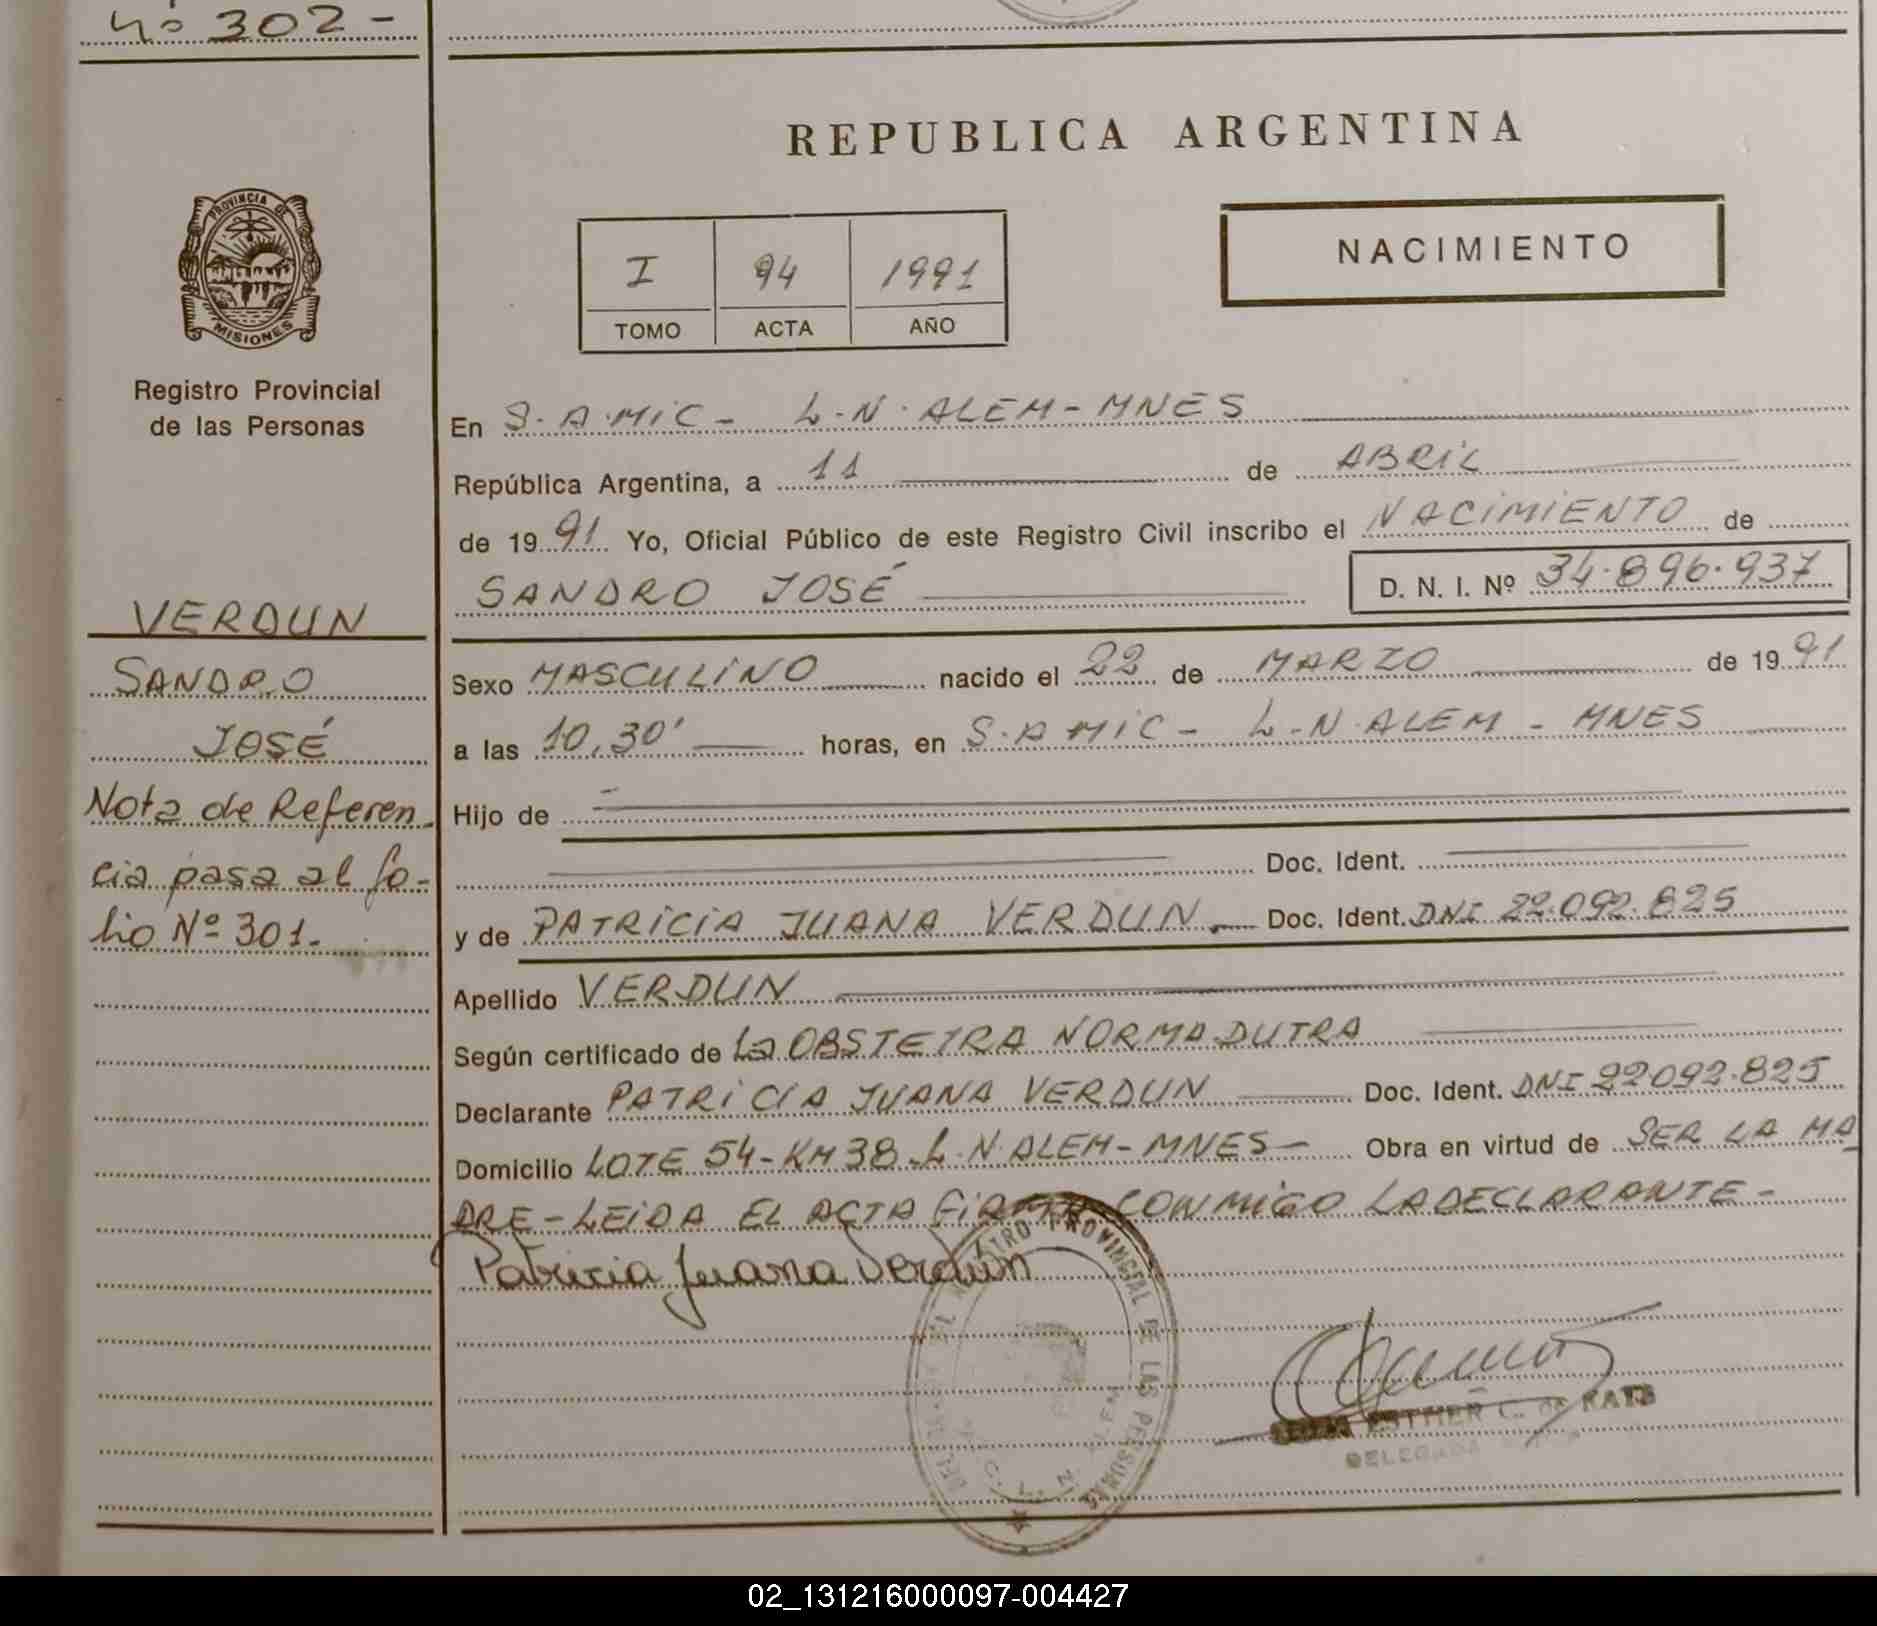 nº 302-
REPUBLICA ARGENTINA
PROVINCIA DE
MISIONES
Registro Provincial
de las Personas
NACIMIENTO
I 94 1991
TOMO ACTA AÑO
En S.A.MIC- L.N.ALEM-MNES
República Argentina, a 11 de ABRIL
de 1991 Yo, Oficial Público de este Registro Civil inscribo el NACIMIENTO de
SANDRO JOSÉ D. N. I. Nº 34.896.937
VERDUN
SANDRO
JOSÉ
Nota de Referen-
cia pasa al fo-
lio Nº 301.
Sexo MASCULINO nacido el 22 de MARZO de 1991
a las 10,30' horas, en S.A MIC- L.N.ALEM - MNES
Hijo de
Doc. Ident.
y de PATRICIA JUANA VERDUN Doc. Ident. DNI 22.092.825
Apellido VERDUN
Según certificado de La OBSTETRA NORMA DUTRA
Declarante PATRICIA JUANA VERDUN Doc. Ident. DNI 22092.825
Domicilio LOTE 54-KM38-L.N.ALEM-MNES- Obra en virtud de SER LA MA
DRE-LEIDA EL ACTA FIRMA CONMIGO LA DECLARANTE-
Patricia Juana Verdun
REGISTRO PROVINCIAL DE LAS PERSONAS
L. N. ALEM
ESTHER C. de KATS
DELEGADA
02_131216000097-004427